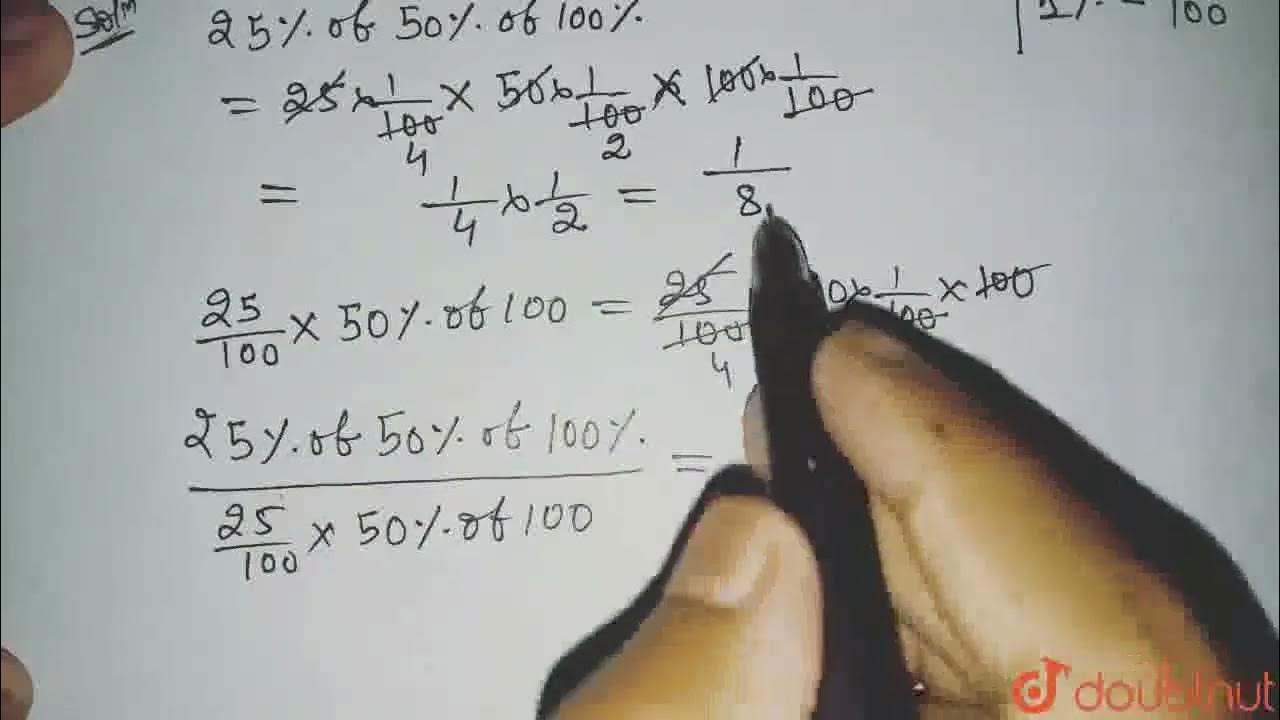 Solⁿ 25%. of 50%. of 100%. 1%. = 1/100
= 25 × 1/100 × 50 × 1/100 × 100 × 1/100
4 2
= 1/4 × 1/2 = 1/8
25/100 × 50%. of 100 = 25/100 0 × 1/100 × 100
4
25%. of 50%. of 100%. =
25/100 × 50%. of 100
doubtnut